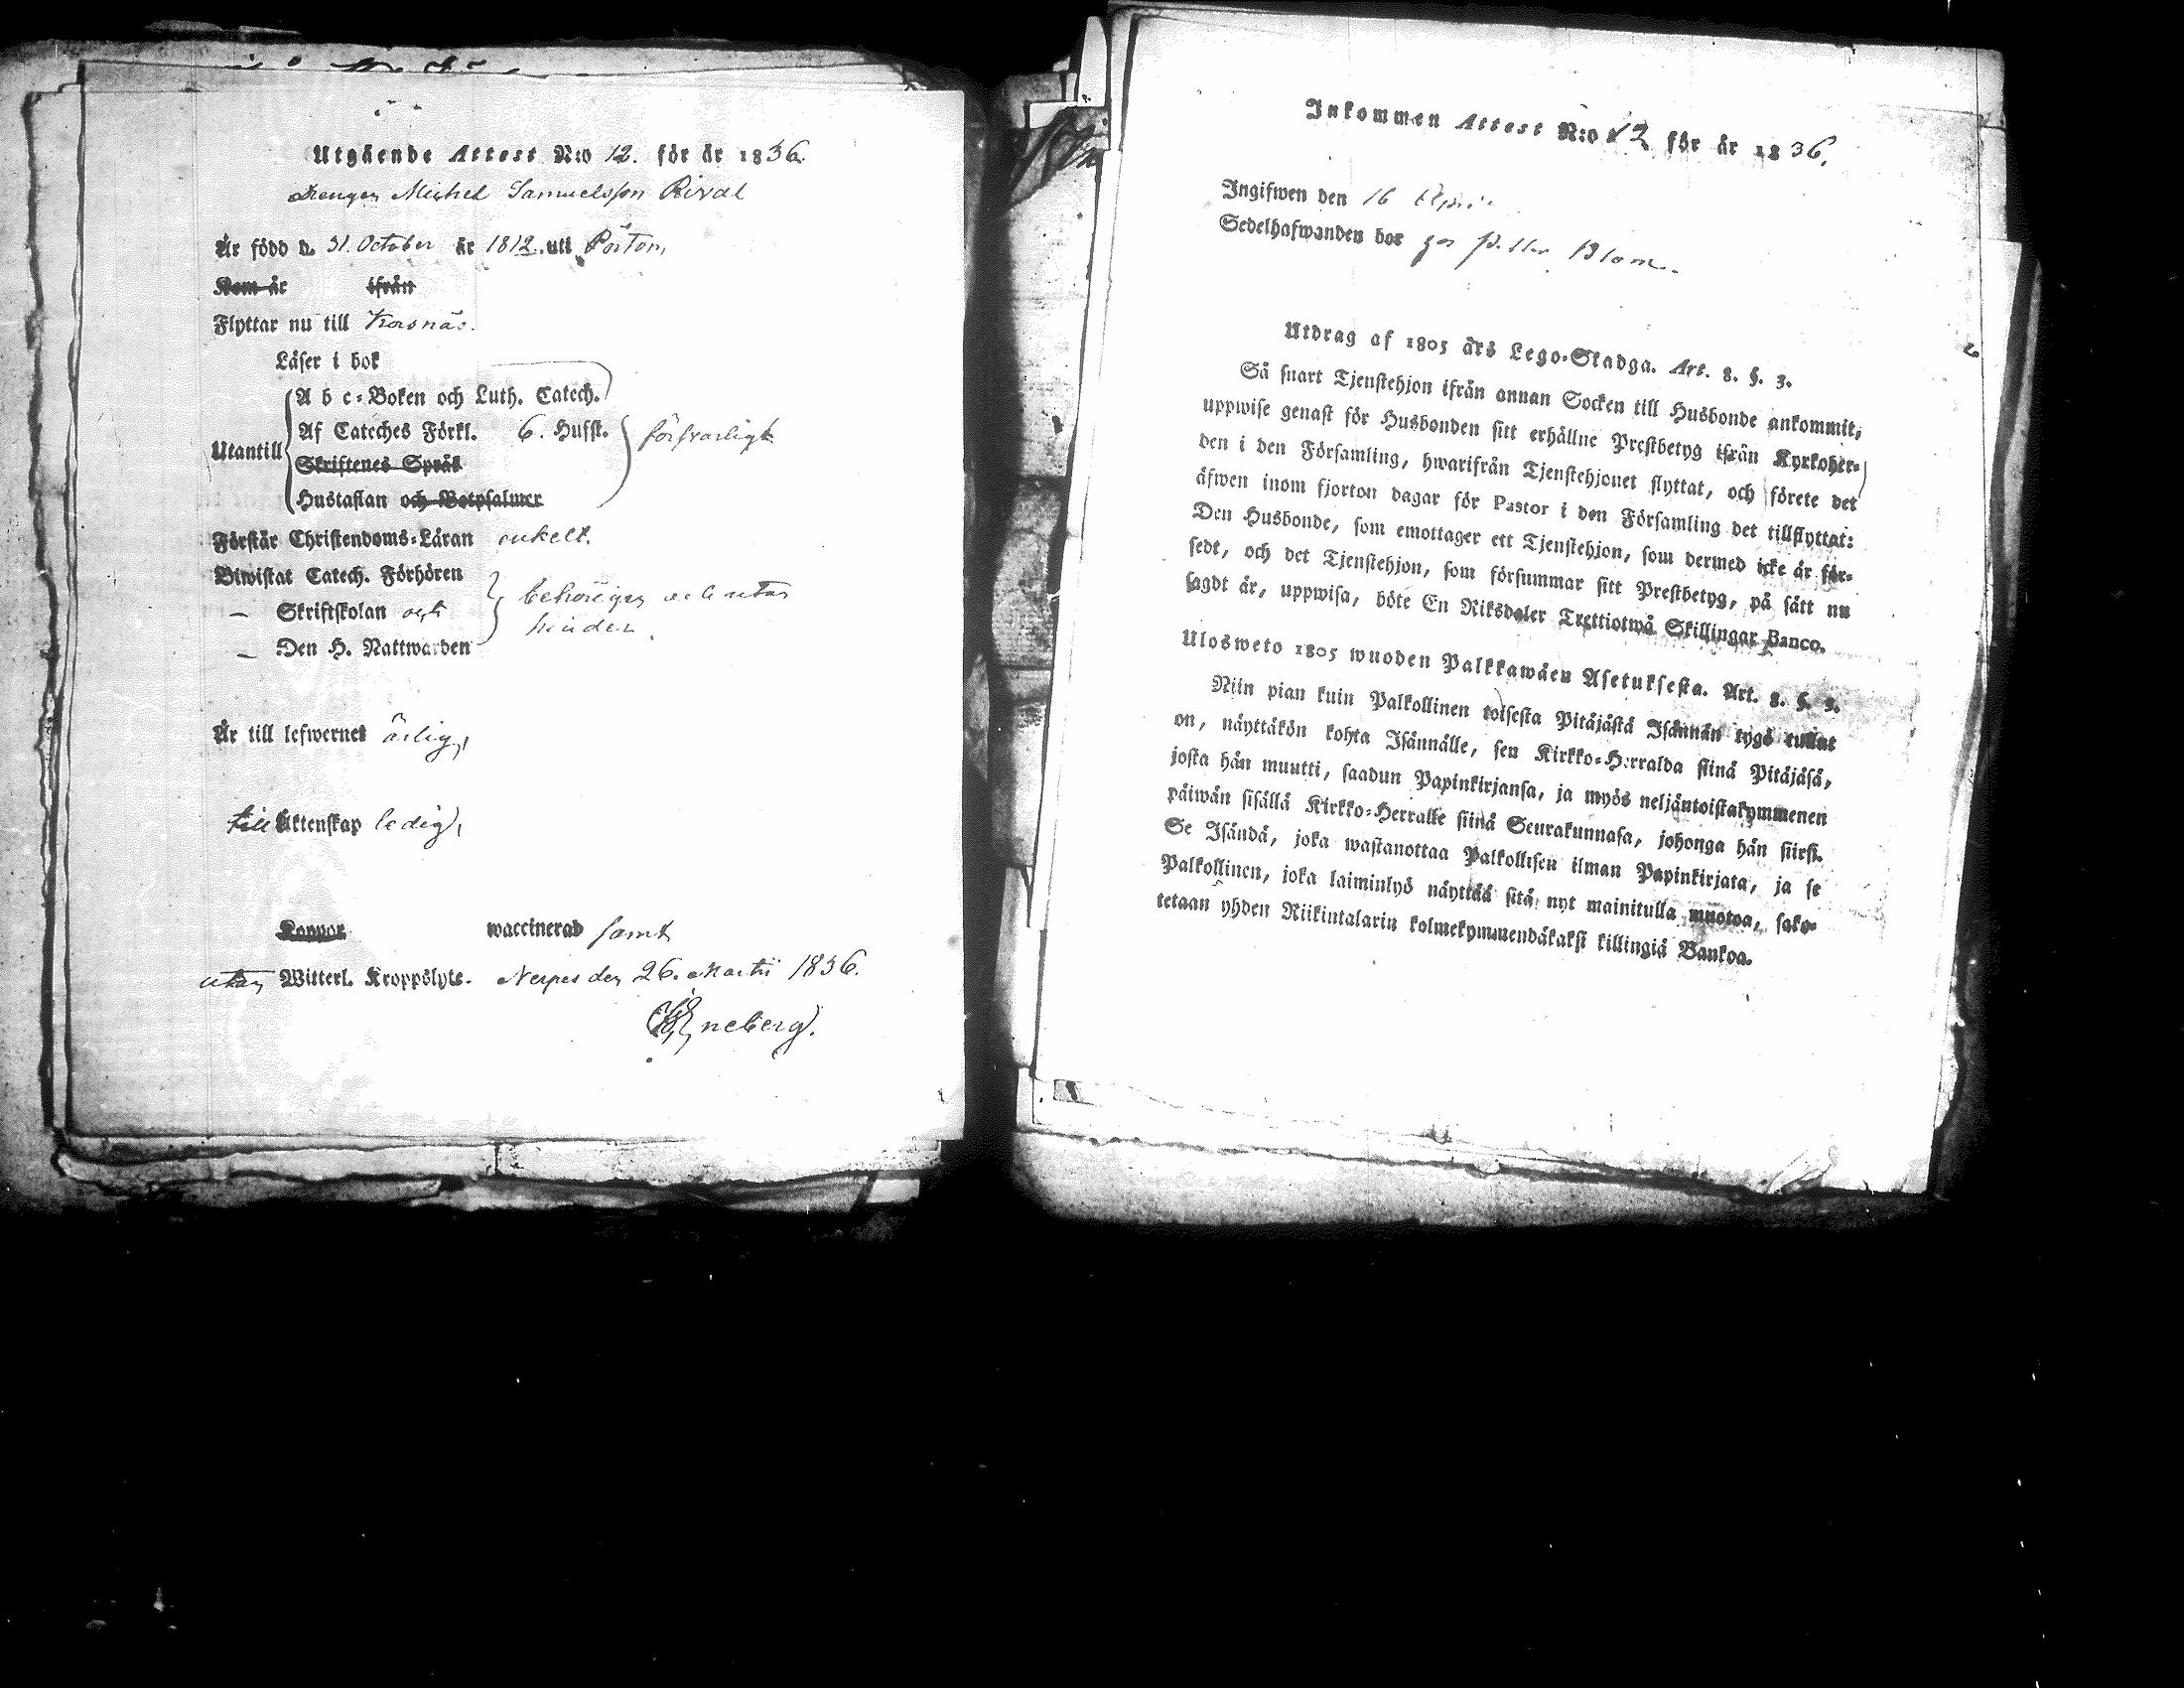 Utgående Attest N:o 12. för år 1836.
Drengen Michel Samuelsson Rival
Är född d. 31. October år 1812. uti Pörtom,
Kom år ifrån
Flyttar nu till Korsnäs.
Läser i bok
A b c-Boken och Luth. Catech.
Af Cateches Förkl. 6. Hufst. försvarligt
Utantill
Skriftenes Språk
Hustaflan och Botpsalmer
Förstår Christendoms-Läran enkelt.
Biwistat Catech. Förhören
behörigen och utan
— Skriftskolan och
hinder.
— Den H. Nattwarden
Är till lefwernet ärlig,
till Äktenskap ledig,
Koppor waccinerad samt
utan Witterl. Kroppslyte. Nerpes den 26. Martii 1836.
Eneberg.
Inkommen Attest N:o 12 för år 1836.
Ingifwen den 16 April
Sedelhafwanden bor hos Petter Blom.
Utdrag af 1805 års Lego-Stadga. Art. 8. §. 3.
Så snart Tjenstehjon ifrån annan Socken till Husbonde ankommit,
uppwise genast för Husbonden sitt erhållne Prestbetyg ifrån Kyrkoher-
den i den Församling, hwarifrån Tjenstehjonet flyttat, och förete det
äfwen inom fjorton dagar för Pastor i den Församling det tillflyttat:
Den Husbonde, som emottager ett Tjenstehjon, som dermed icke är för-
sedt, och det Tjenstehjon, som försummar sitt Prestbetyg, på sätt nu
sagdt är, uppwisa, böte En Riksdaler Trettiotwå Skillingar Banco.
Ulosweto 1805 wuoden Palkkawäen Asetuksesta. Art. 8. §. 3.
Niin pian kuin Palkollinen toisesta Pitäjästä Isännän tygö tullut
on, näyttäkön kohta Isännälle, sen Kirkko-Herralda siinä Pitäjäsä,
josta hän muutti, saadun Papinkirjansa, ja myös neljäntoistakymmenen
päiwän sisällä Kirkko-Herralle siinä Seurakunnasa, johonga hän siirsi.
Se Isändä, joka wastanottaa Palkollisen ilman Papinkirjata, ja se
Palkollinen, joka laiminlyö näyttää sitä nyt mainitulla muotoa, sako-
tetaan yhden Riikintalarin kolmekymmendäkaksi killingiä Bankoa.